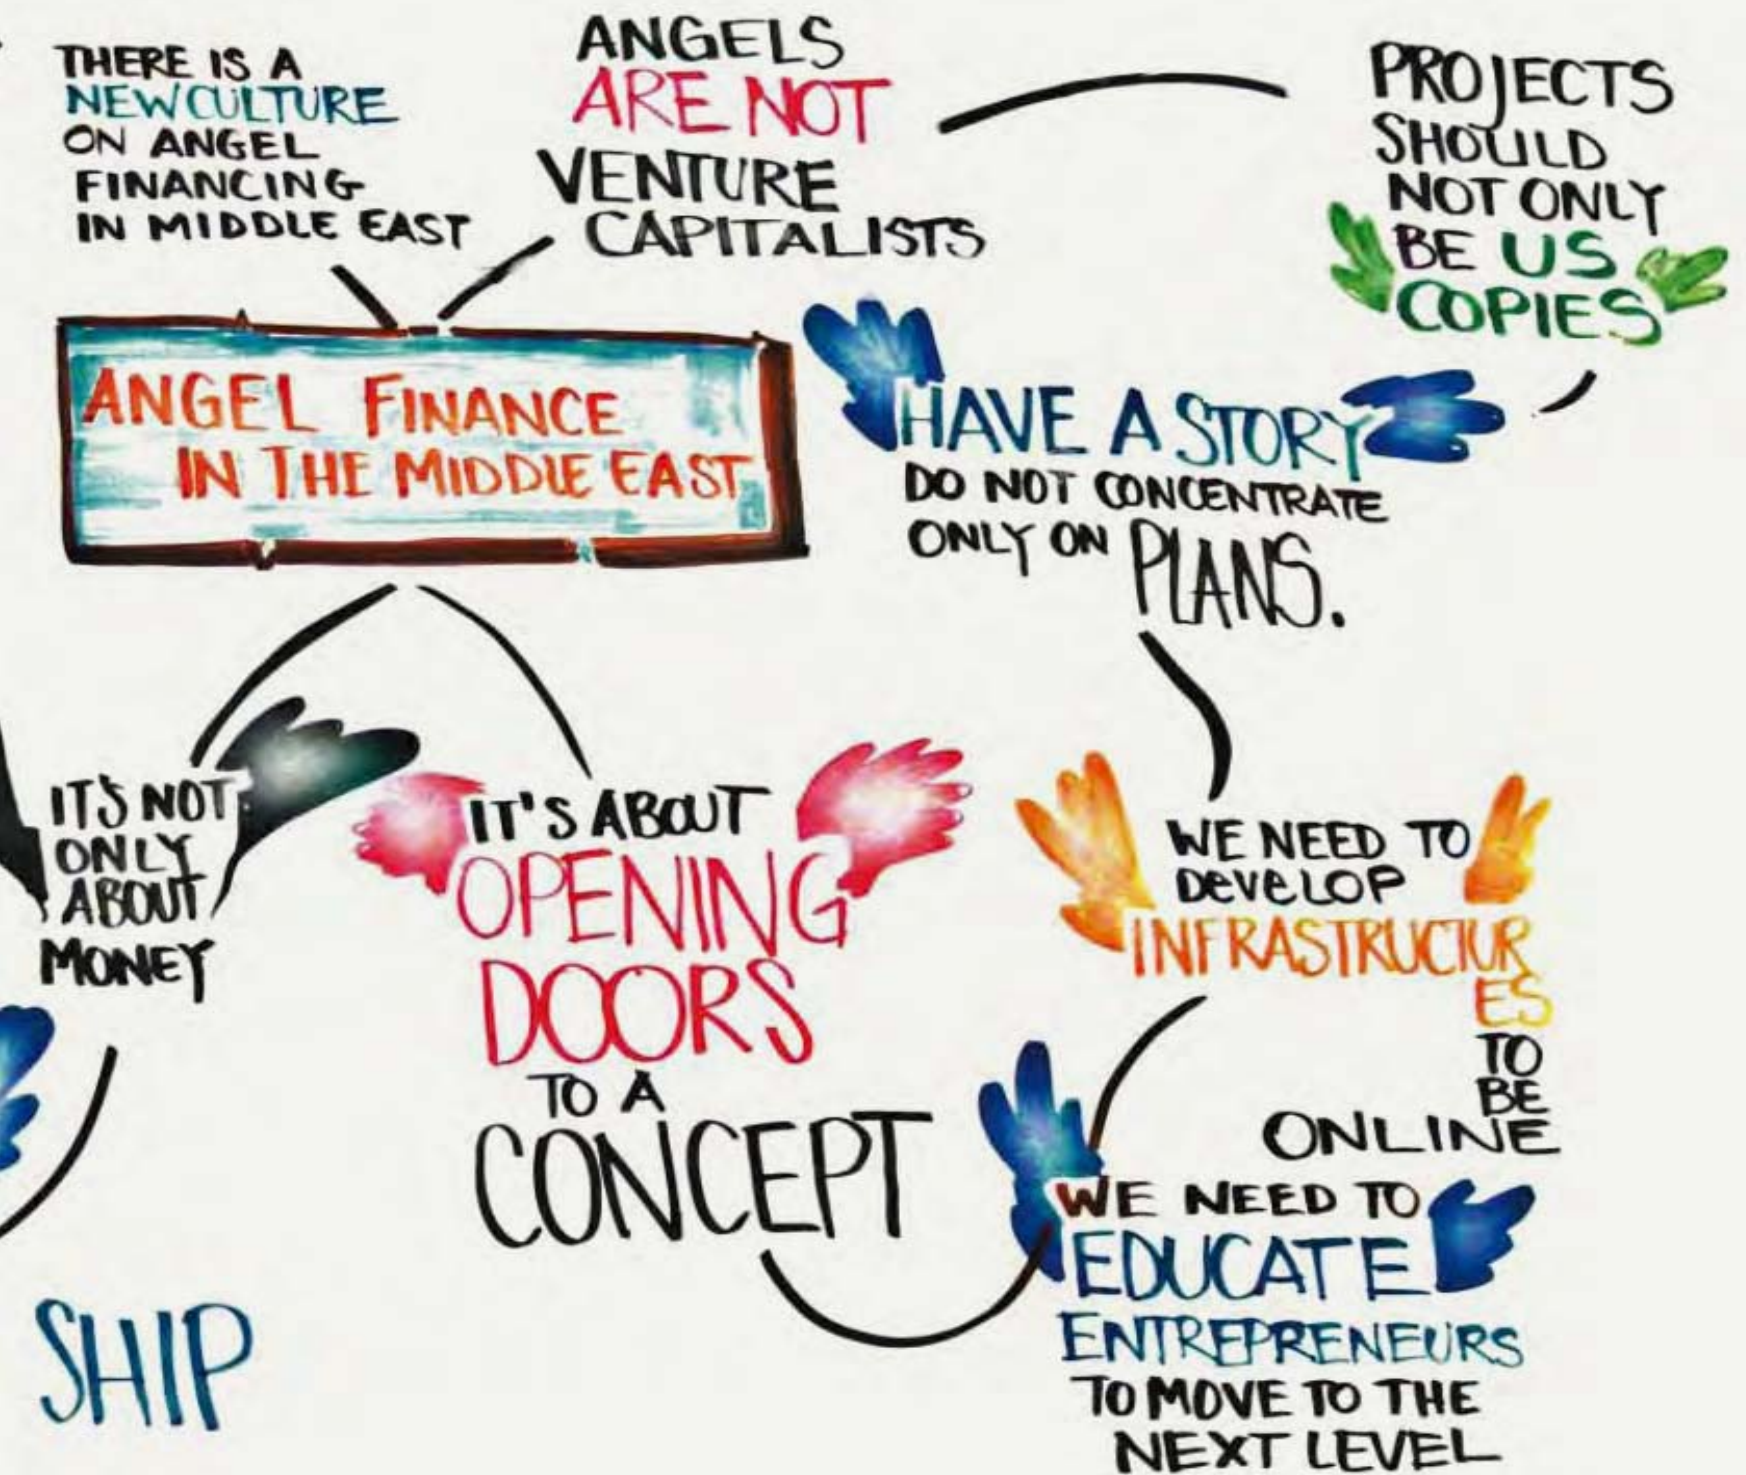 THERE IS A
NEW CULTURE
ON ANGEL
FINANCING
IN MIDDLE EAST
ANGELS
ARE NOT
VENTURE
CAPITALISTS
PROJECTS
SHOULD
NOT ONLY
BE US
COPIES
ANGEL FINANCE
IN THE MIDDLE EAST
HAVE A STORY
DO NOT CONCENTRATE
ONLY ON PLANS.
IT'S NOT
ONLY
ABOUT
MONEY
IT'S ABOUT
OPENING
DOORS
TO A
CONCEPT
WE NEED TO
DEVELOP
INFRASTRUCTUR
ES
TO
BE
ONLINE
WE NEED TO
EDUCATE
ENTREPRENEURS
TO MOVE TO THE
NEXT LEVEL
SHIP